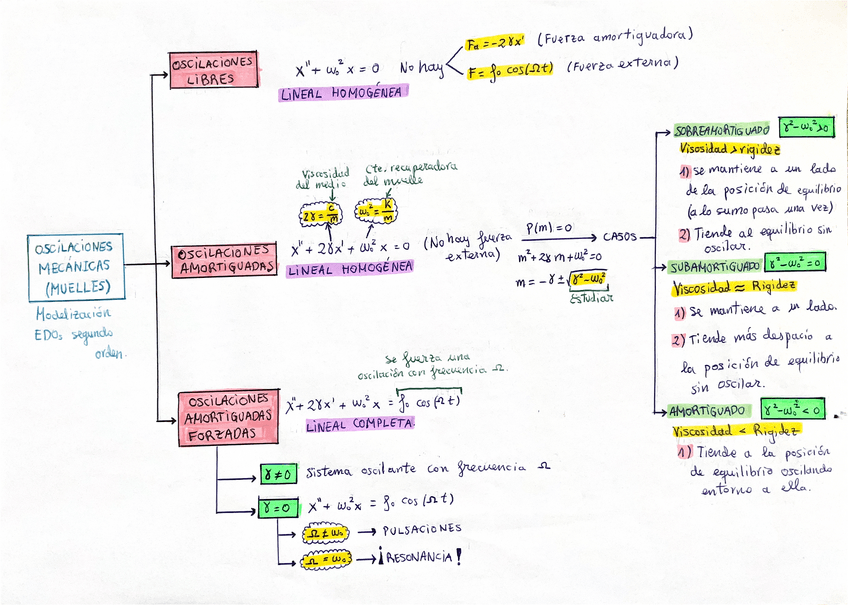 OSCILACIONES
MECÁNICAS
(MUELLES)
Modelización
EDOs segundo
orden.
OSCILACIONES
LIBRES
x'' + ω₀² x = 0
LINEAL HOMOGÉNEA
No hay
Fa = -2γx' (Fuerza amortiguadora)
F = f₀ cos(Ωt) (Fuerza externa)
Viscosidad
del medio
2γ = c/m
Cte. recuperadora
del muelle
ω₀² = k/m
OSCILACIONES
AMORTIGUADAS
x'' + 2γx' + ω₀² x = 0
LINEAL HOMOGÉNEA
(No hay fuerza
externa)
P(m) = 0
m² + 2γm + ω₀² = 0
m = -γ ± √γ² - ω₀²
Estudiar
CASOS
SOBREAMORTIGUADO γ² - ω₀² > 0
Visosidad > rigidez
1) Se mantiene a un lado
de la posición de equilibrio
(a lo sumo pasa una vez)
2) Tiende al equilibrio sin
oscilar.
SUBAMORTIGUADO γ² - ω₀² = 0
Viscosidad ≈ Rigidez
1) Se mantiene a un lado.
2) Tiende más despacio a
la posición de equilibrio
sin oscilar.
AMORTIGUADO γ² - ω₀² < 0
Viscosidad < Rigidez
1) Tiende a la posición
de equilibrio oscilando
entorno a ella.
OSCILACIONES
AMORTIGUADAS
FORZADAS
Se fuerza una
oscilación con frecuencia Ω.
x'' + 2γx' + ω₀² x = f₀ cos(Ωt)
LINEAL COMPLETA.
γ ≠ 0 Sistema oscilante con frecuencia Ω
γ = 0 x'' + ω₀² x = f₀ cos(Ωt)
Ω ≠ ω₀ → PULSACIONES
Ω = ω₀ → ¡RESONANCIA!